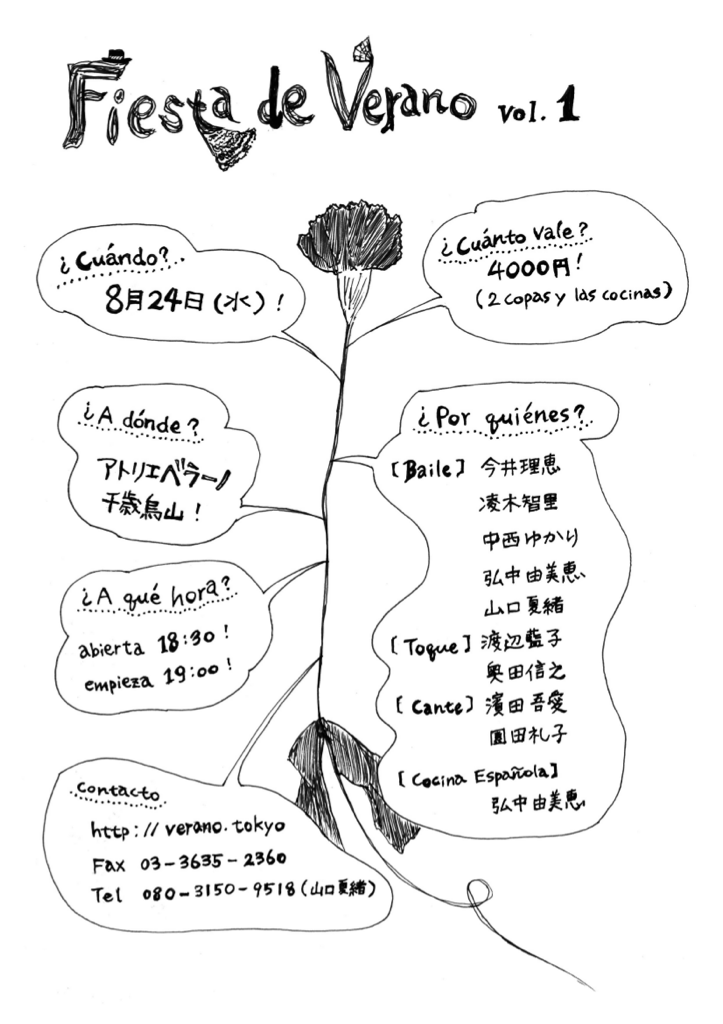 Fiesta de Verano vol. 1
¿Cuándo?
8月24日(水)!
¿Cuánto Vale?
4000円!
(2 copas y las cocinas)
¿A dónde?
アトリエベラーノ
千歳烏山!
¿Por quiénes?
[Baile] 今井理恵
凌木智里
中西ゆかり
弘中由美恵
山口夏緒
[Toque] 渡辺藍子
奥田信之
[Cante] 濱田吾愛
園田礼子
[Cocina Española]
弘中由美恵
¿A qué hora?
abierta 18:30!
empieza 19:00!
contacto
http://verano.tokyo
Fax 03-3635-2360
Tel 080-3150-9518(山口夏緒)